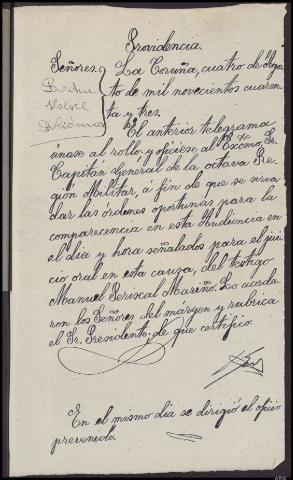 Providencia.
Señores. La Coruña, cuatro de Agos
to de mil novecientos cuaren
ta y tres.
El anterior telegrama
únase al rollo y ofíciese al Excmo. Sr.
Capitán General de la octava Re
gión Militar, a fin de que se sirva
dar las órdenes oportunas para la
comparecencia en esta Audiencia en
el día y hora señalados para el jui
cio oral en esta causa, del testigo
Manuel Periscal Mariño. Lo acorda
ron los Señores del márgen y rubrica
el Sr. Presidente, de que certifico.
En el mismo día se dirigió el oficio
prevenido.